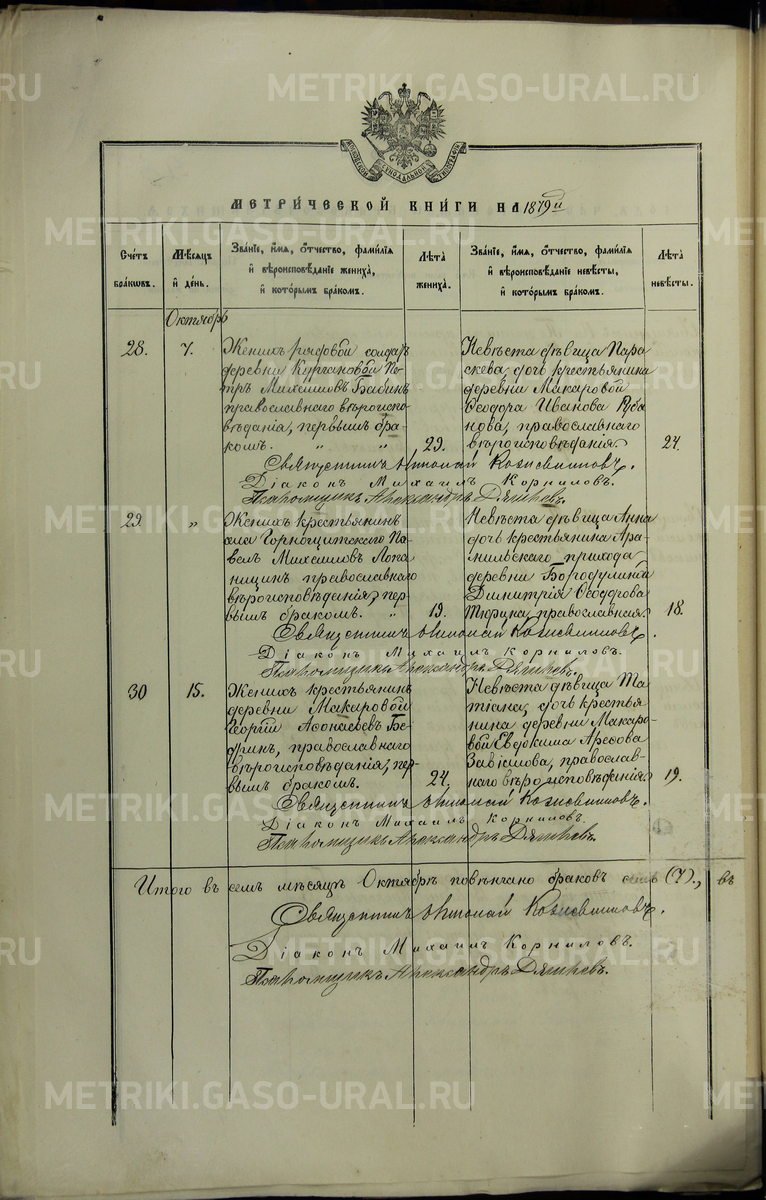 METRIKI.GASO-URAL.RU
МОСКОВСКОЙ СѴНОДАЛЬНОЙ ТИПОГРАФІИ
МЕТРИ́ЧЕСКОЙ КНИ́ГИ НА 1879й
Счетъ бракωвъ.
Мѣсяцъ й день.
Званіе, и́мя, о́тчество, фамилія й вѣроисповѣданіе жениха, й которымъ бракомъ.
Лѣта жениха.
Званіе, и́мя, о́тчество, фамилія й вѣроисповѣданіе невѣсты, й которымъ бракомъ.
Лѣта невѣсты.
Октябрь
28. 7.
Женихъ рядовой солдатъ
деревни Кургановой Пе-
тръ Михаиловъ Бабинъ
православнаго вѣроиспо-
вѣданія, первымъ бра-
комъ. „ „ 29.
Невѣста дѣвица Пара
скева, дочь крестьянина
деревни Макаровой
Ѳеодора Иванова Руба
нова, православнаго
вѣроисповѣданія. 24.
Священникъ Николай
Діаконъ Михаилъ Корниловъ.
Псаломщикъ Александръ
29 „
Женихъ крестьянинъ
села Горнощитскаго Па-
велъ Михаиловъ Лопа
нищинъ православнаго
вѣроисповѣданія, пер-
вымъ бракомъ. „ 19.
Невѣста дѣвица Анна
дочь крестьянина Ара-
мильскаго прихода
деревни Бородулиной
Димитрія Ѳеодорова
православная. 18.
Священникъ Николай
Діаконъ Михаилъ Корниловъ.
Псаломщикъ Александръ
30 15.
Женихъ крестьянинъ
деревни Макаровой
Георгій Аѳонасьевъ Бе-
православнаго
вѣроисповѣданія, пер
вымъ бракомъ. 24.
Невѣста дѣвица Та-
тіана, дочь крестья
нина деревни Макаро-
вой Евдокима
православ-
наго вѣроисповѣданія. 19.
Священникъ Николай
Діаконъ Михаилъ Корниловъ.
Псаломщикъ Александръ
Итого въ семъ мѣсяцѣ Октябрѣ повѣнчано браковъ семь (7)., въ
Священникъ Николай
Діаконъ Михаилъ Корниловъ.
Псаломщикъ Александръ